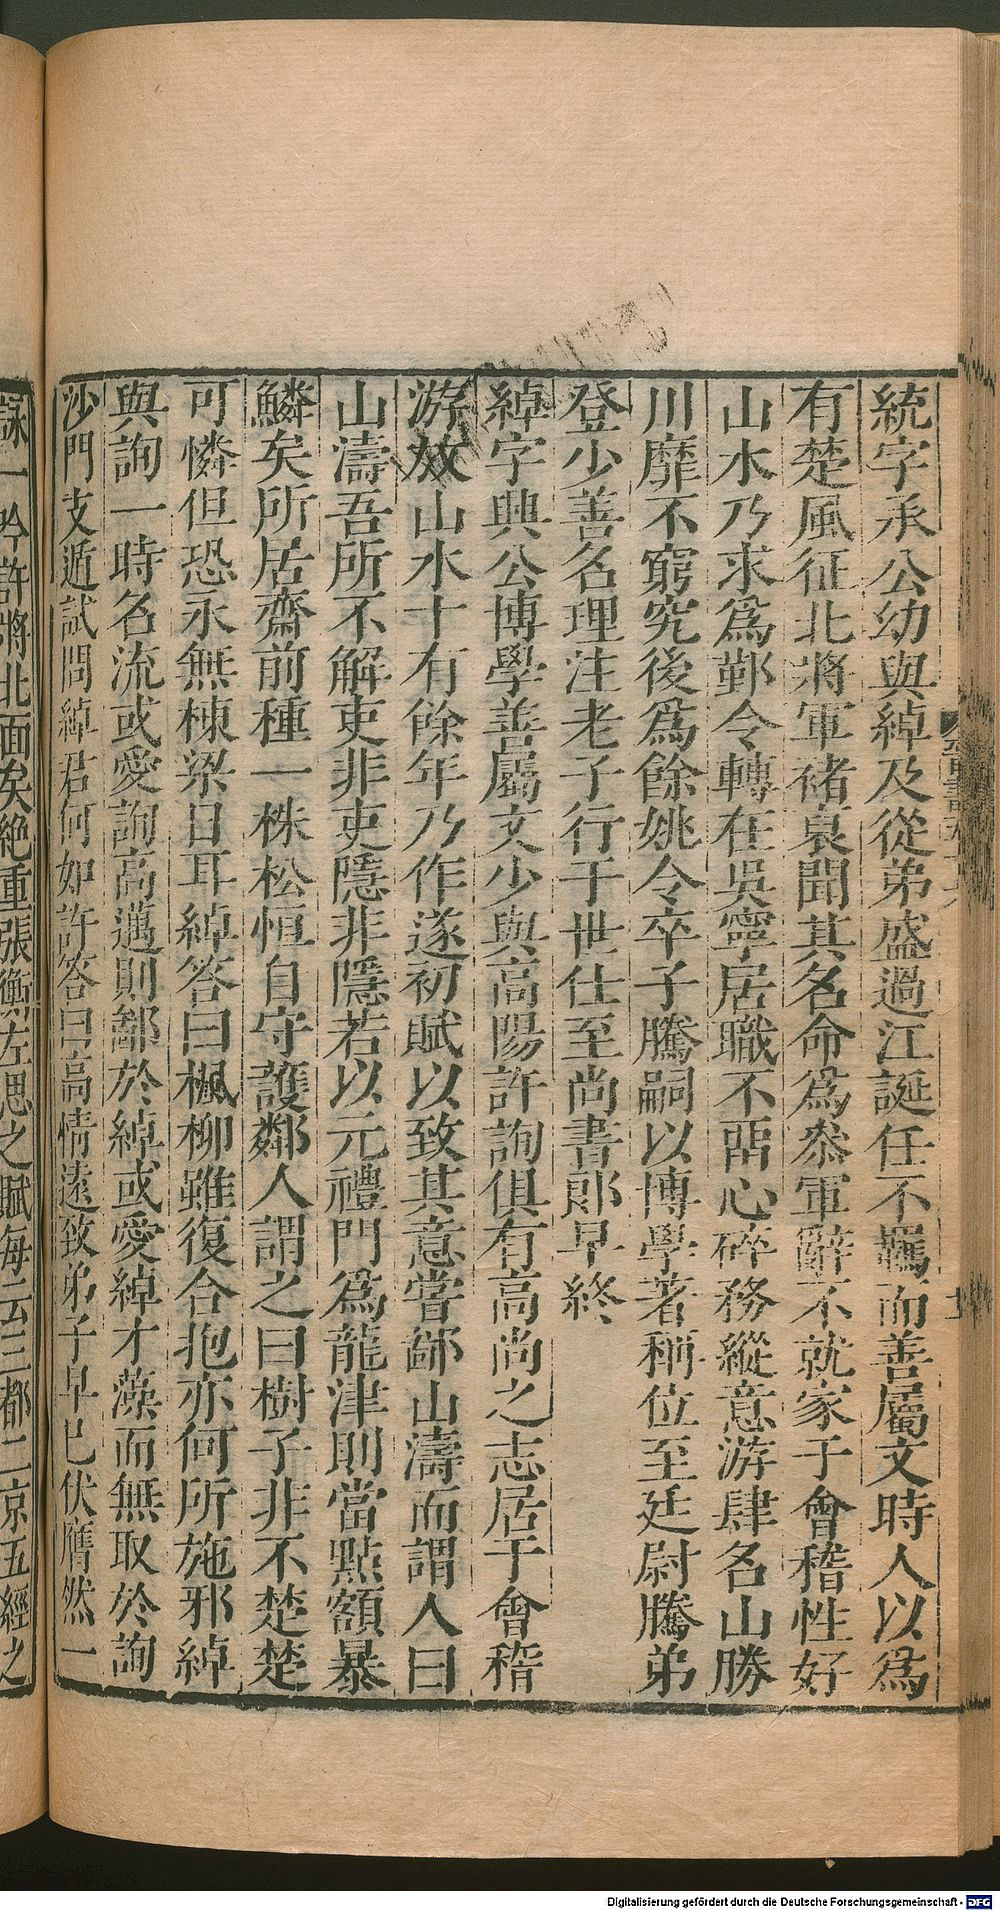 統字承公幼與綽及從弟盛過江誕任不羈而善屬文時人以爲
有楚風征北將軍褚裒聞其名命爲參軍辭不就家于會稽性好
山水乃求爲鄞令轉在吳寧居職不畱心碎務縱意游肆名山勝
川靡不窮究後爲餘姚令卒子騰嗣以博學著稱位至廷尉騰弟
登少善名理注老子行于世仕至尚書郎早終
綽字興公博學善屬文少與高陽許詢俱有高尚之志居于會稽
游放山水十有餘年乃作遂初賦以致其意嘗鄙山濤而謂人曰
山濤吾所不解吏非吏隱非隱若以元禮門爲龍津則當點額暴
鱗矣所居齋前種一株松恒自守護鄰人謂之曰樹子非不楚楚
可憐但恐永無棟梁日耳綽答曰楓柳雖復合抱亦何所施邪綽
與詢一時名流或愛詢高邁則鄙於綽或愛綽才藻而無取於詢
沙門支遁試問綽君何如許答曰高情遠致弟子早已伏膺然一
詠一吟許將北面矣絶重張衡左思之賦每云三都二京五經之
Digitalisierung gefördert durch die Deutsche Forschungsgemeinschaft - DFG